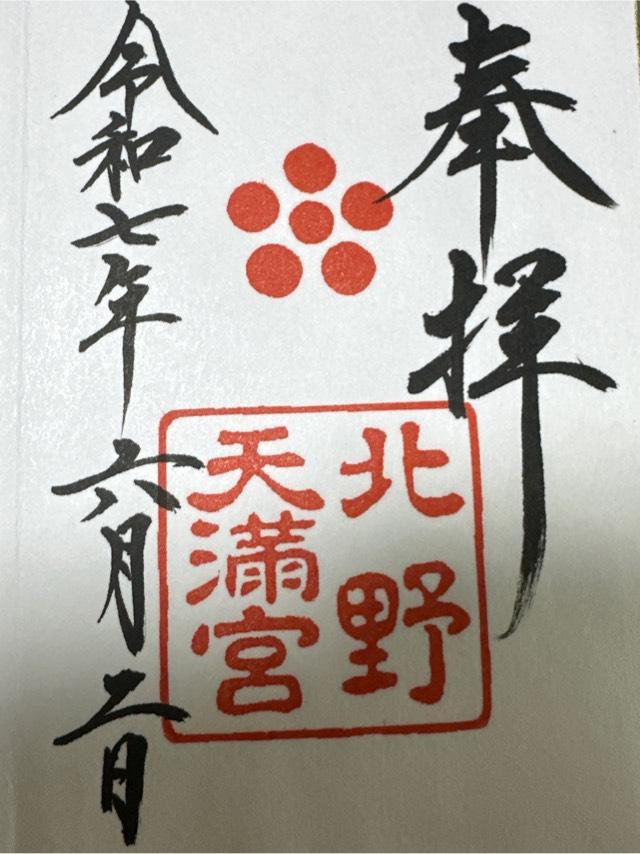 奉拝
北野
天満宮
令和七年六月二日